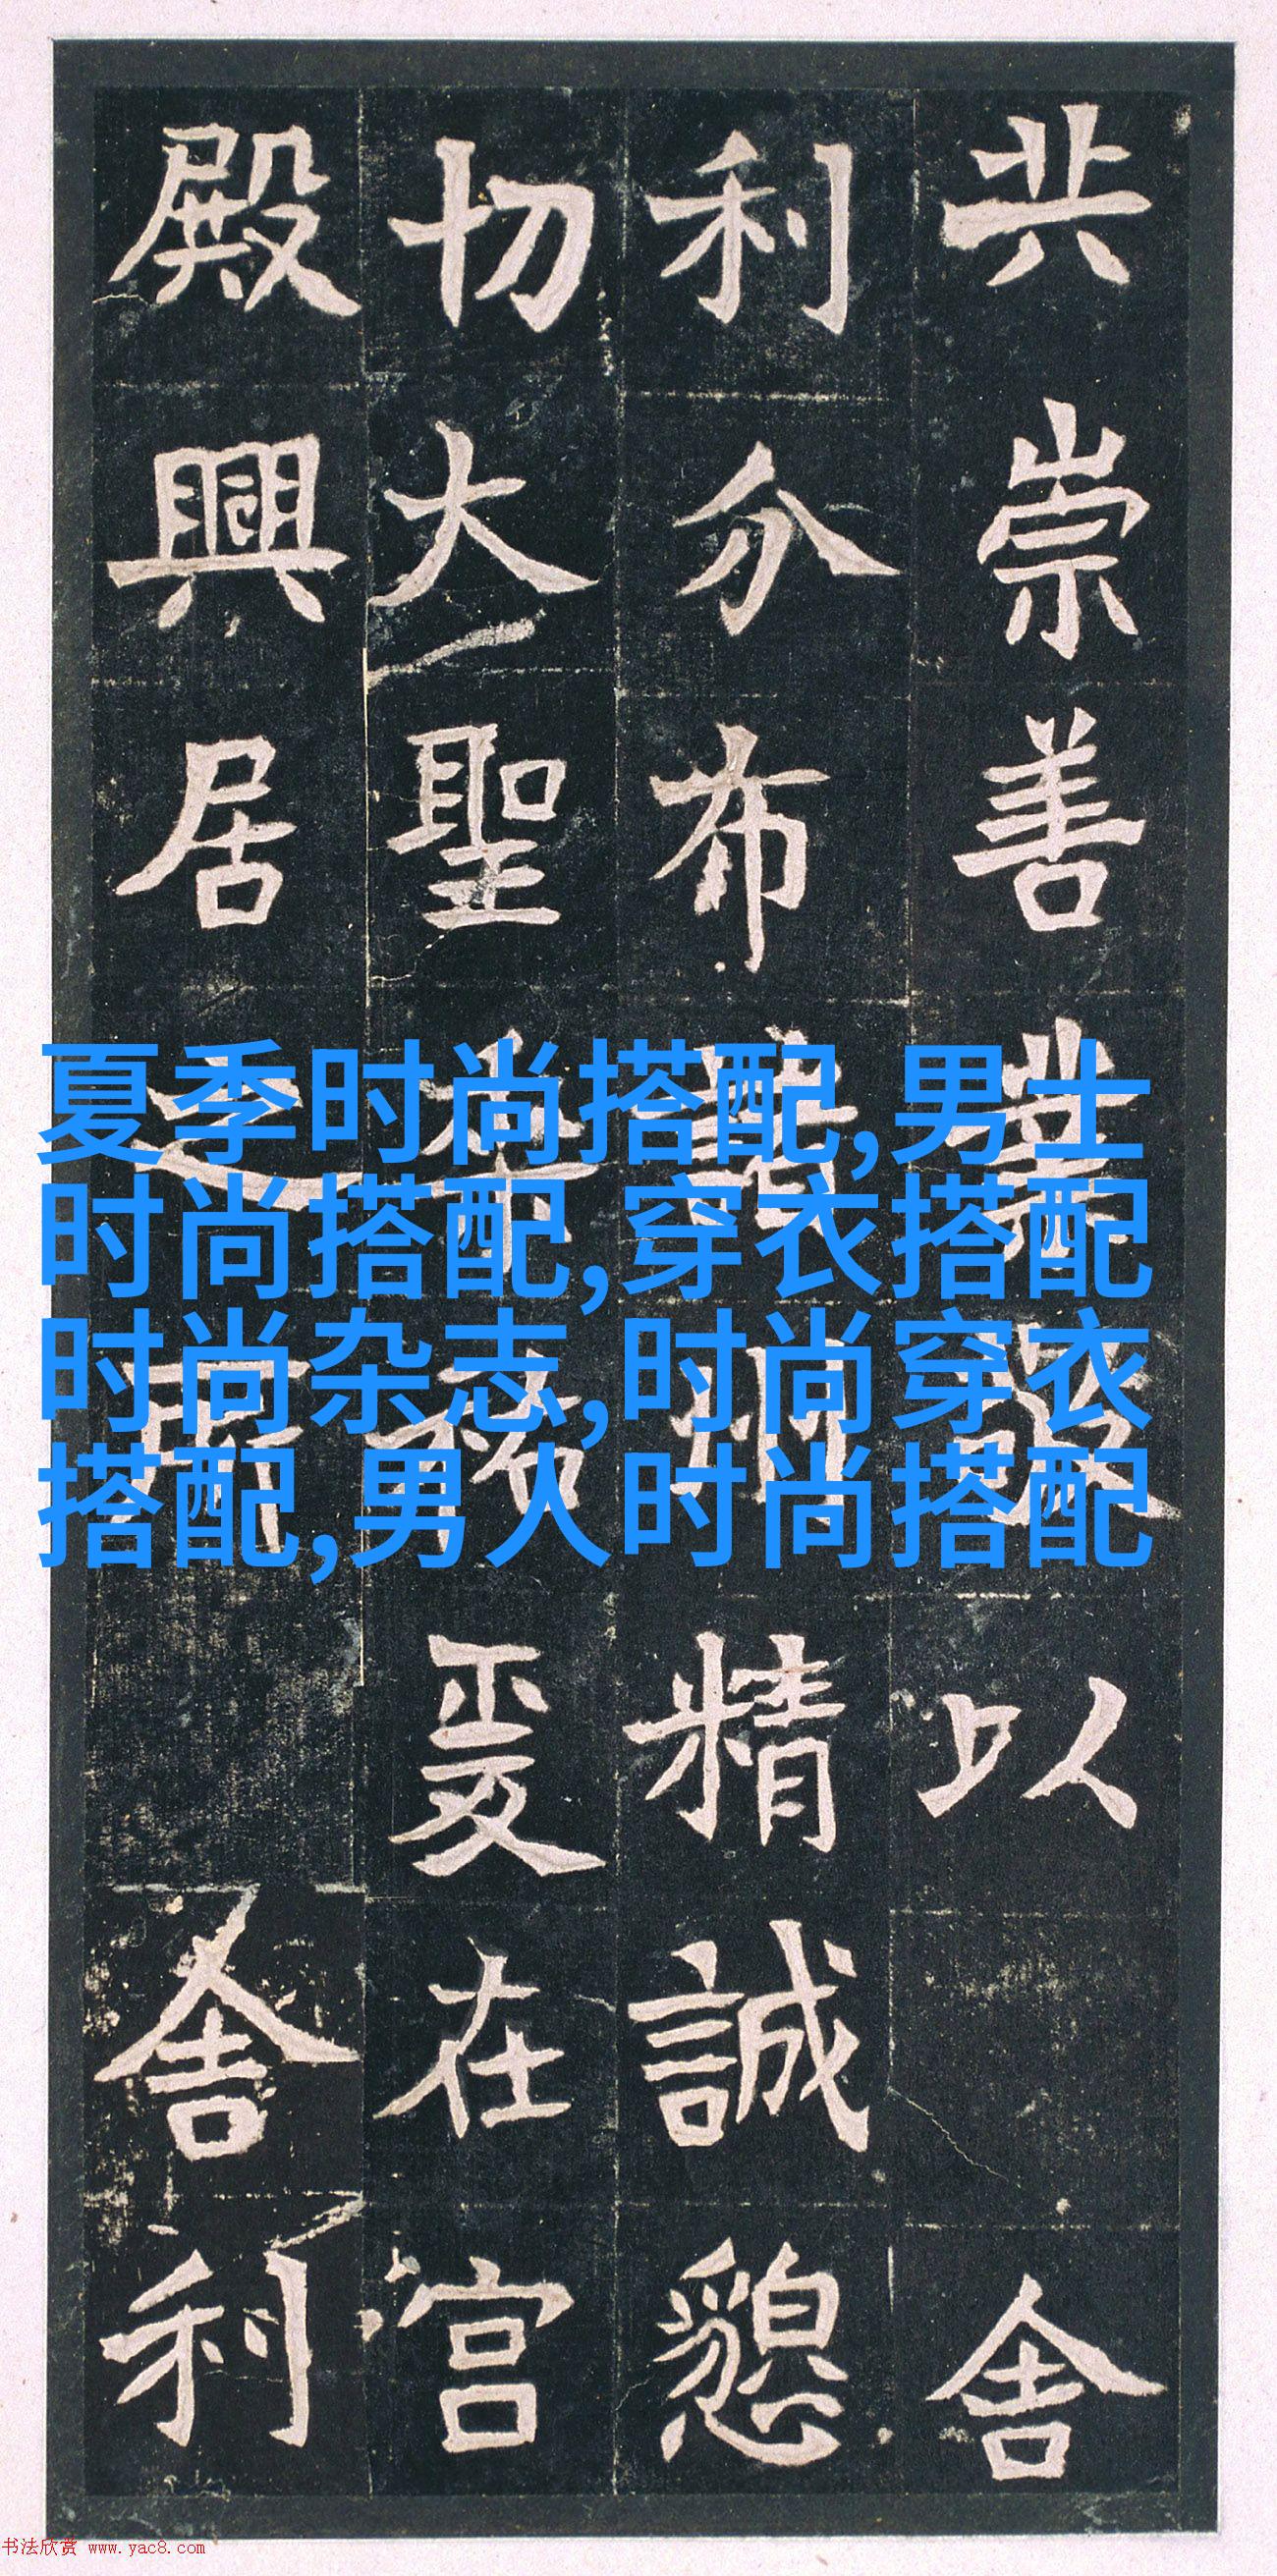 共崇善業以舍
利分布諸州精誠懇
切大聖垂祐爰在宮
殿興居之所舍利
夏季时尚搭配,男士
时尚搭配,穿衣搭配
时尚杂志,时尚穿衣
搭配,男人时尚搭配
书法欣赏 www.yac8.com